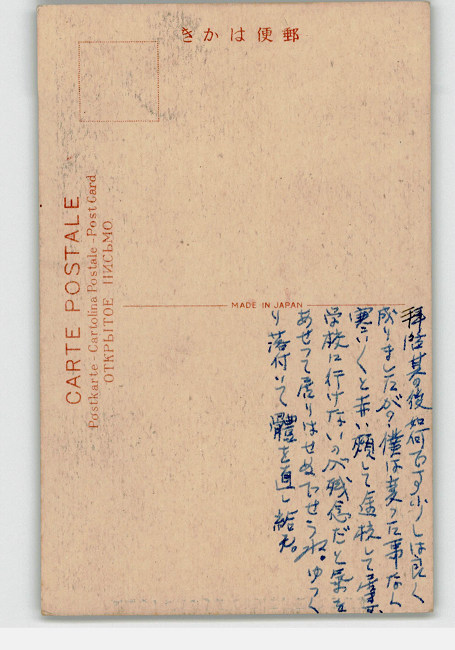 郵便はかき
CARTE POSTALE
Postkarte-Cartolina Postale-Post Card
ОТКРЫТОЕ ПИСЬМО
MADE IN JAPAN
拝啓其の後如何です少しは良く
成りましたか?僕は変った事なく
寒い〱と赤い頬して登校して居ます
学校に行けないのが残念だと気を
あせって居りはせぬでせうね。ゆっく
り落付いて體を直し給え。